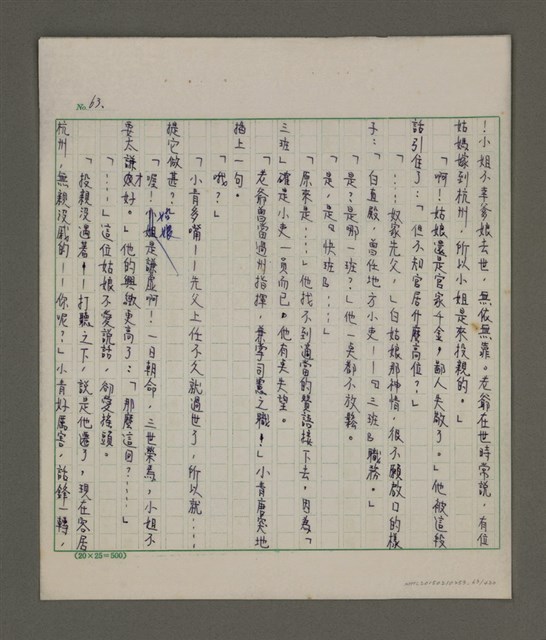 No. 63.
！小姐不幸爹娘去世，無依無靠。老爺在世時常說，有位
姑媽嫁到杭州，所以小姐是來投親的。」
「啊！姑娘還是官家千金，鄙人失敬了。」他被這段
話引住了：「但不知官居什麼高位？」
「……奴家先父，」白姑娘那神情，很不願啟口的樣
子：「白直殿，曾任地方小吏——『三班』職務。」
「是？是哪一班？」他一点都不放鬆。
「是，是『快班』……」
「原來是……」他找不到適當的贊語接下去。因為「
三班」確是小吏一員而已。他有点失望。
「老爺曾當過州指揮，兼掌司憲之職！」小青唐突地
插上一句。
「哦？」
「小青多嘴——先父上任不久就過世了，所以就……
提它做甚？」
「喔！姑娘是謙虛啊！一日朝命，三世榮焉，小姐不
要太謙才好。」他的興緻更高了：「那麼這回？……」
「……」這位姑娘不愛說話，卻愛掩頭。
「投親沒遇著！——打聽之下，說是他遷了，現在客居
杭州，無親沒戚的——你呢？」小青好厲害，話鋒一轉，
(20×25=500)